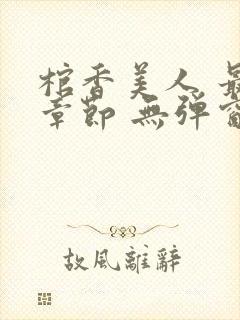 棺香美人 最
章節 無彈窗
故風離辭